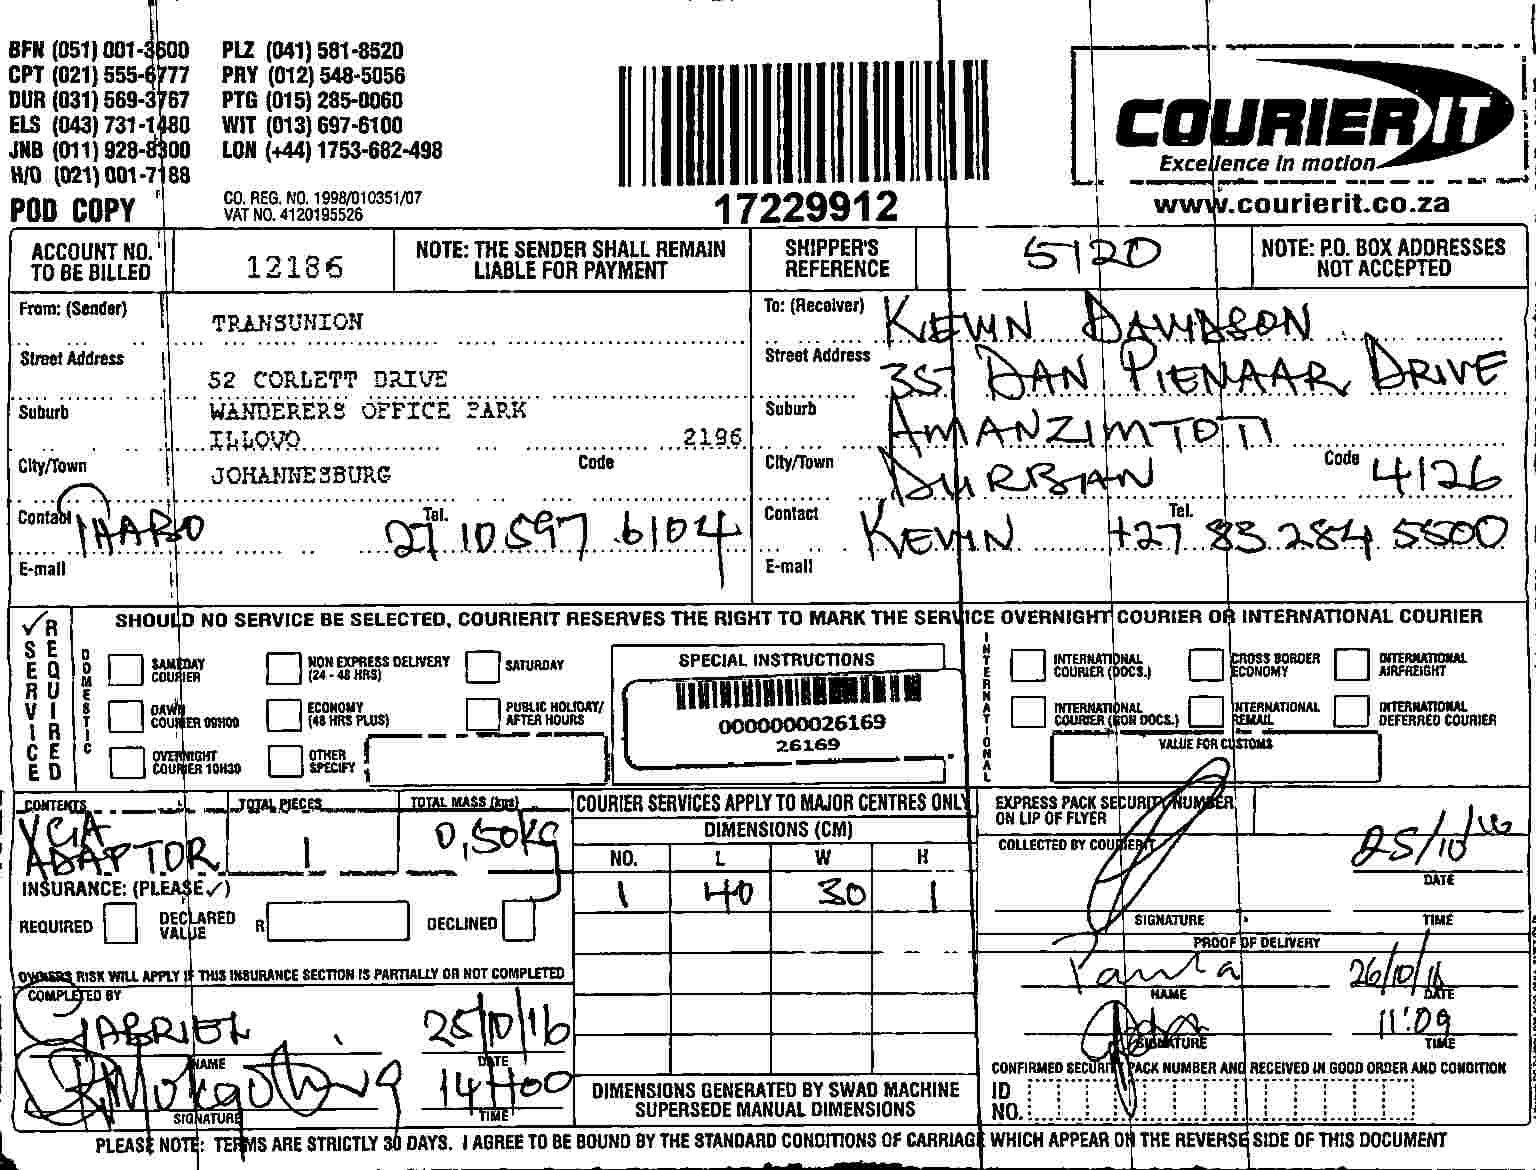 BFN (051) 001-3600 PLZ (041) 581-8520
CPT (021) 555-6777 PRY (012) 548-5056
DUR (031) 569-3767 PTG (015) 285-0060
ELS (043) 731-1480 WIT (013) 697-6100
JNB (011) 928-8300 LON (+44) 1753-682-498
H/O (021) 001-7188
POD COPY
CO. REG. NO. 1998/010351/07
VAT NO. 4120195526
17229912
COURIER IT
Excellence in motion
www.courierit.co.za
ACCOUNT NO. TO BE BILLED
12186
NOTE: THE SENDER SHALL REMAIN LIABLE FOR PAYMENT
SHIPPER'S REFERENCE
5120
NOTE: P.O. BOX ADDRESSES NOT ACCEPTED
From: (Sender)
TRANSUNION
Street Address
52 CORLETT DRIVE
Suburb
WANDERERS OFFICE PARK
ILLOVO 2196
City/Town
JOHANNESBURG
Code
Contact THABO
Tel. 27 10 597 6104
E-mail
To: (Receiver) KEVIN DAVIDSON
Street Address 35 DAN PIENAAR DRIVE
Suburb AMANZIMTOTI
City/Town DURBAN
Code 4126
Contact KEVIN
Tel. +27 83 284 5500
E-mail
✓ SERVICE REQUIRED
SHOULD NO SERVICE BE SELECTED, COURIERIT RESERVES THE RIGHT TO MARK THE SERVICE OVERNIGHT COURIER OR INTERNATIONAL COURIER
DOMESTIC
SAMEDAY COURIER
NON EXPRESS DELIVERY (24 - 48 HRS)
SATURDAY
DAWN COURIER 09H00
ECONOMY (48 HRS PLUS)
PUBLIC HOLIDAY/ AFTER HOURS
OVERNIGHT COURIER 10H30
OTHER SPECIFY
SPECIAL INSTRUCTIONS
0000000026169
26169
INTERNATIONAL
INTERNATIONAL COURIER (DOCS.)
CROSS BORDER ECONOMY
INTERNATIONAL AIRFREIGHT
INTERNATIONAL COURIER (NON DOCS.)
INTERNATIONAL REMAIL
INTERNATIONAL DEFERRED COURIER
VALUE FOR CUSTOMS
CONTENTS
VGA ADAPTOR
TOTAL PIECES
1
TOTAL MASS (kgs)
0,50KG
INSURANCE: (PLEASE ✓)
REQUIRED
DECLARED VALUE R
DECLINED
OWNERS RISK WILL APPLY IF THIS INSURANCE SECTION IS PARTIALLY OR NOT COMPLETED
COMPLETED BY
GABRIEL
NAME
25/10/16
DATE
SIGNATURE
14H00
TIME
COURIER SERVICES APPLY TO MAJOR CENTRES ONLY
DIMENSIONS (CM)
NO. L W H
1 40 30 1
DIMENSIONS GENERATED BY SWAD MACHINE
SUPERSEDE MANUAL DIMENSIONS
EXPRESS PACK SECURITY NUMBER
ON LIP OF FLYER
COLLECTED BY COURIERIT
SIGNATURE
25/10/16
DATE
TIME
PROOF OF DELIVERY
NAME
26/10/16
DATE
SIGNATURE
11:09
TIME
CONFIRMED SECURITY PACK NUMBER AND RECEIVED IN GOOD ORDER AND CONDITION
ID NO.
PLEASE NOTE: TERMS ARE STRICTLY 30 DAYS. I AGREE TO BE BOUND BY THE STANDARD CONDITIONS OF CARRIAGE WHICH APPEAR ON THE REVERSE SIDE OF THIS DOCUMENT